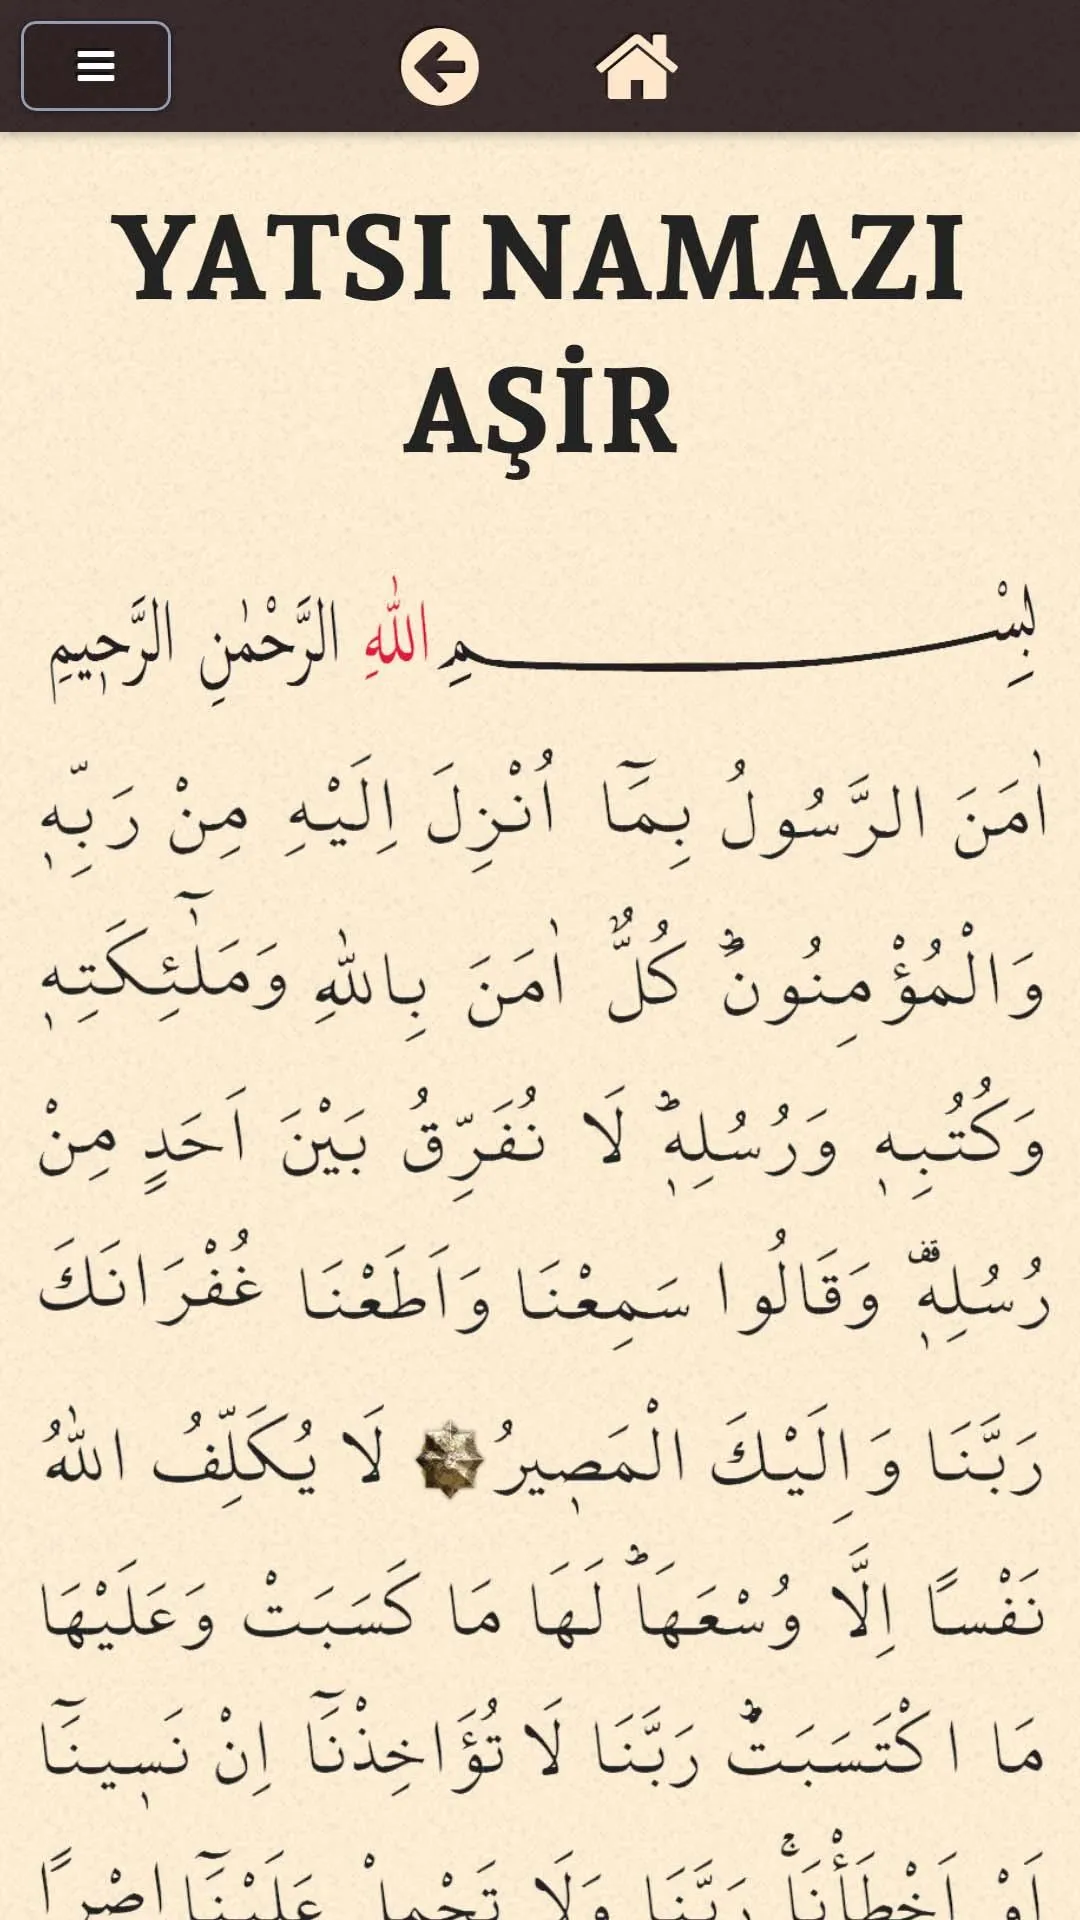 YATSI NAMAZI
AŞİR
بِسْمِ اللّٰهِ الرَّحْمٰنِ الرَّح۪يمِ
اٰمَنَ الرَّسُولُ بِمَٓا اُنْزِلَ اِلَيْهِ مِنْ رَبِّه۪
وَالْمُؤْمِنُونَۜ كُلٌّ اٰمَنَ بِاللّٰهِ وَمَلٰٓئِكَتِه۪
وَكُتُبِه۪ وَرُسُلِه۪ۜ لَا نُفَرِّقُ بَيْنَ اَحَدٍ مِنْ
رُسُلِه۪ۗ وَقَالُوا سَمِعْنَا وَاَطَعْنَا غُفْرَانَكَ
رَبَّنَا وَاِلَيْكَ الْمَص۪يرُ لَا يُكَلِّفُ اللّٰهُ
نَفْسًا اِلَّا وُسْعَهَاۜ لَهَا مَا كَسَبَتْ وَعَلَيْهَا
مَا اكْتَسَبَتْۜ رَبَّنَا لَا تُؤَاخِذْنَٓا اِنْ نَس۪ينَٓا
اَوْ اَخْطَأْنَاۚ رَبَّنَا وَلَا تَحْمِلْ عَلَيْنَٓا اِصْرًا